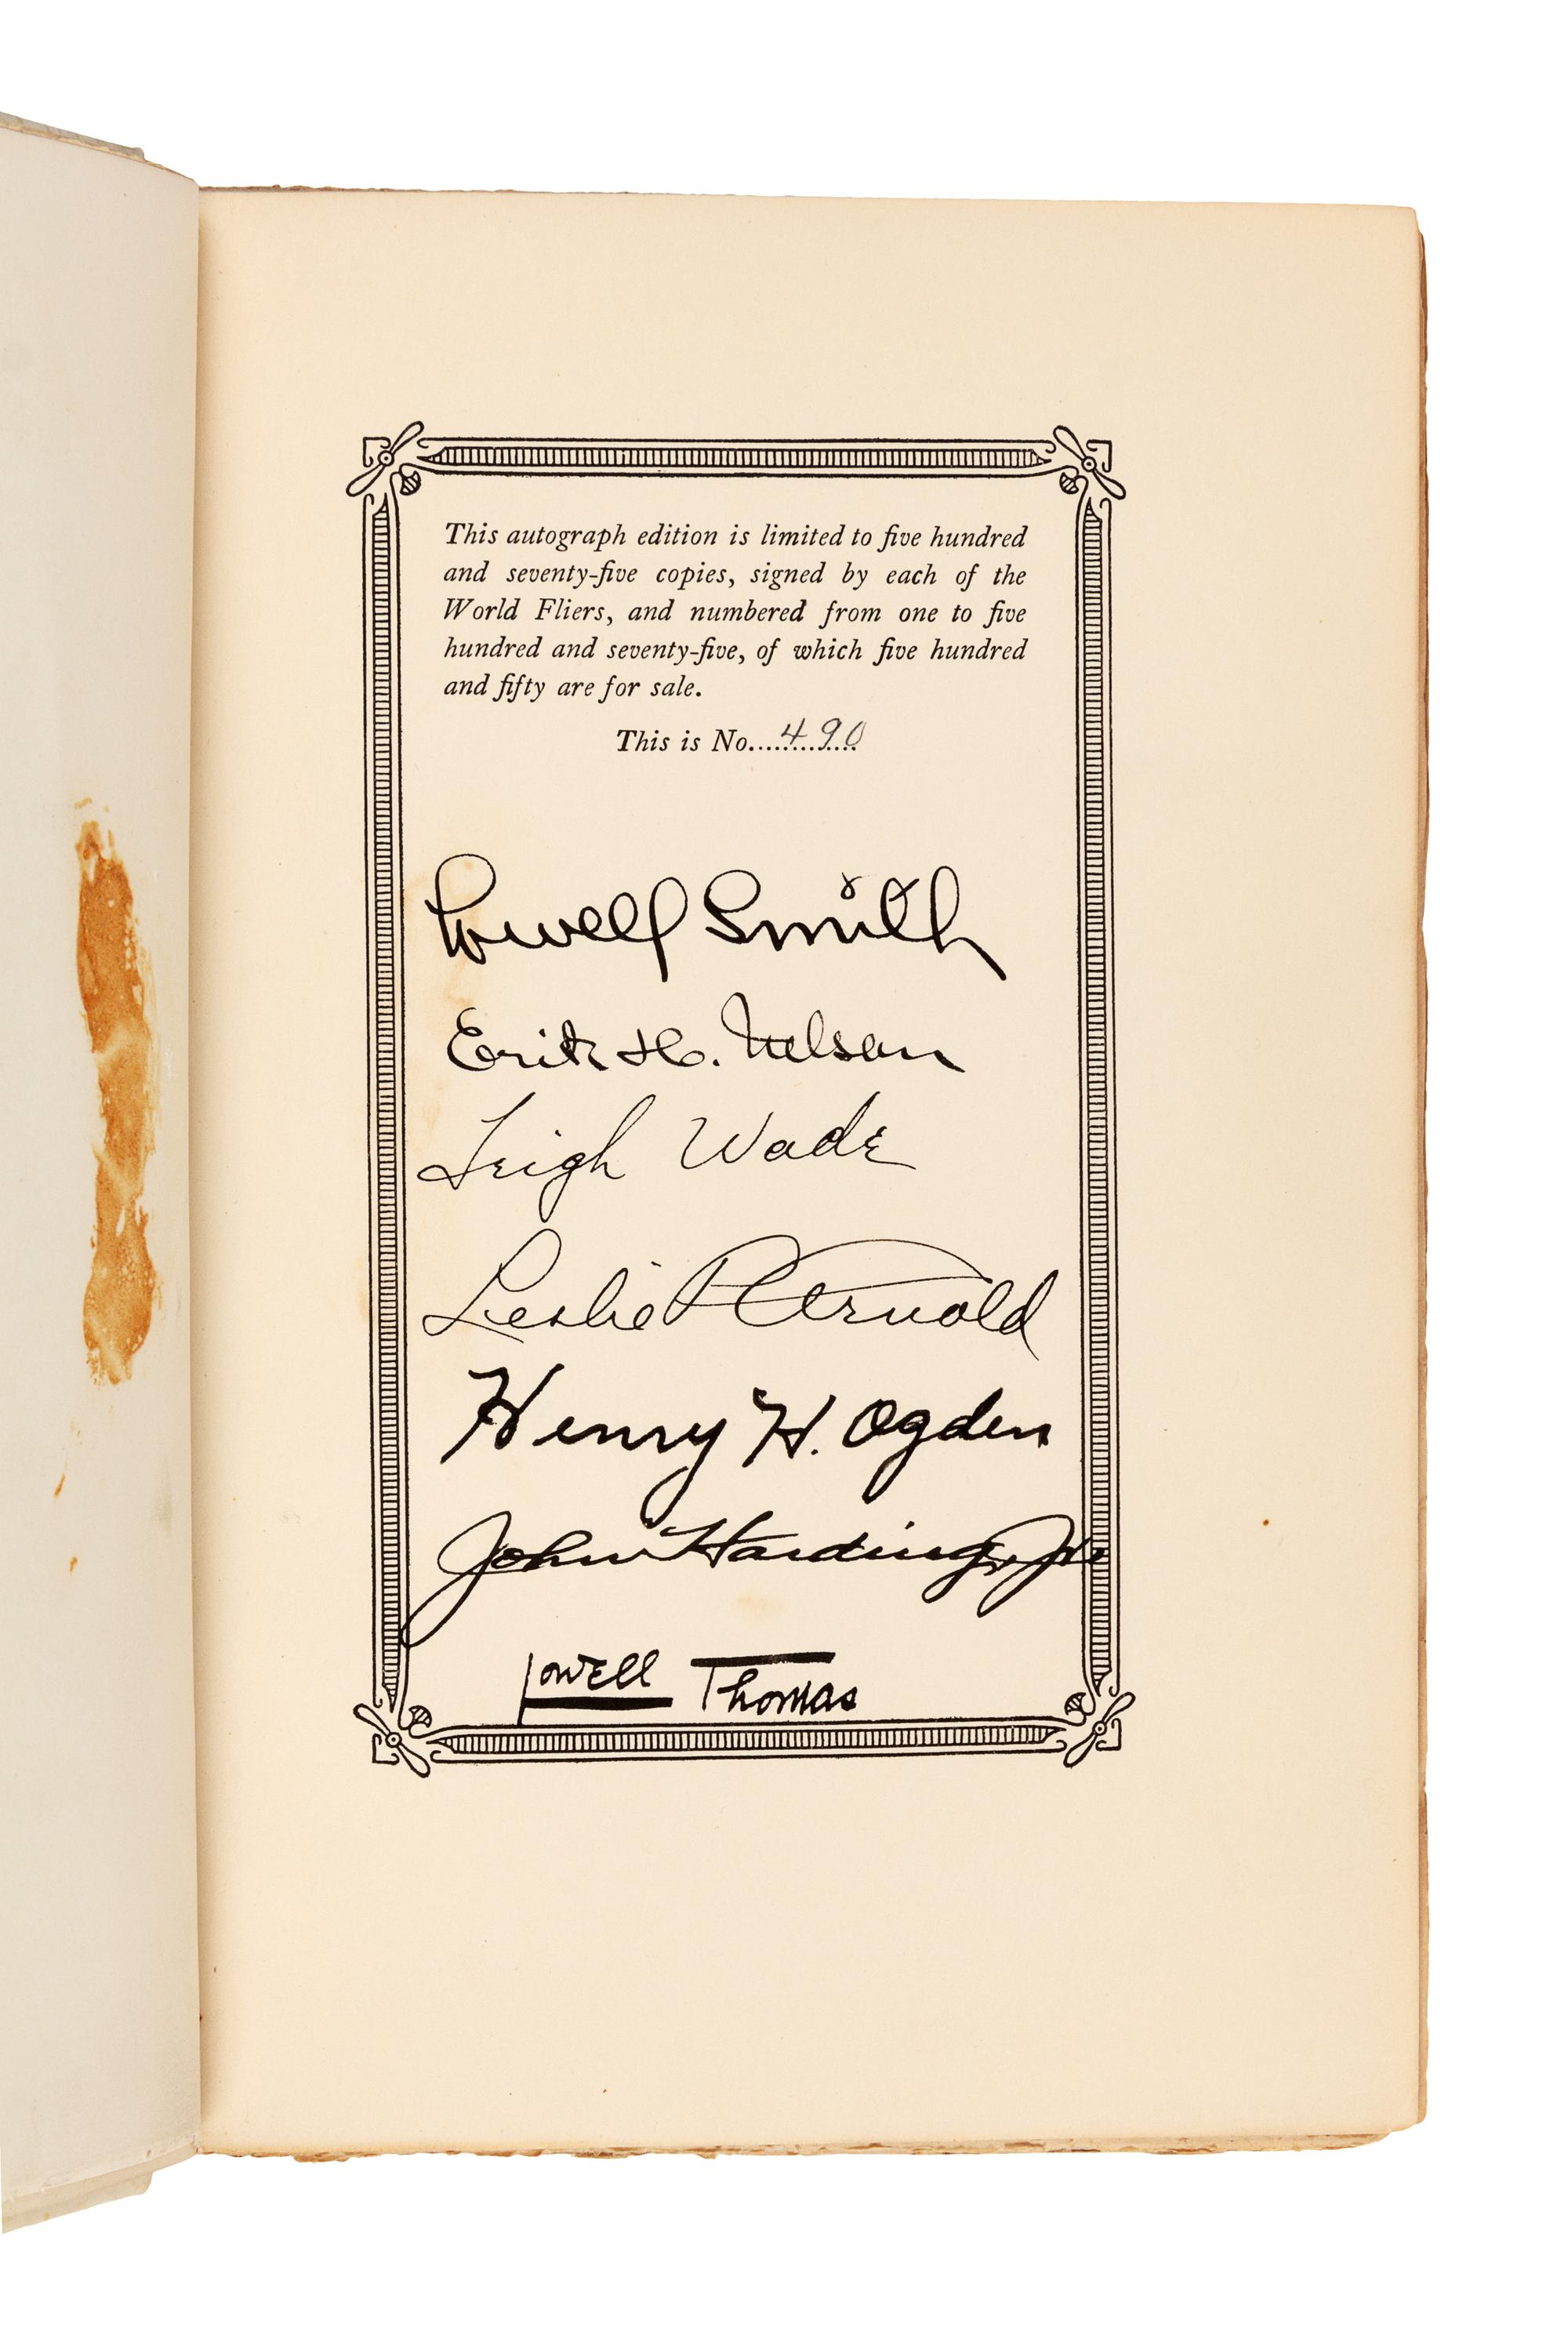 This autograph edition is limited to five hundred
and seventy-five copies, signed by each of the
World Fliers, and numbered from one to five
hundred and seventy-five, of which five hundred
and fifty are for sale.
This is No....490
Lowell Smith
Erik H. Nelson
Leigh Wade
Leslie P Arnold
Henry H. Ogden
John Harding, Jr.
Lowell Thomas